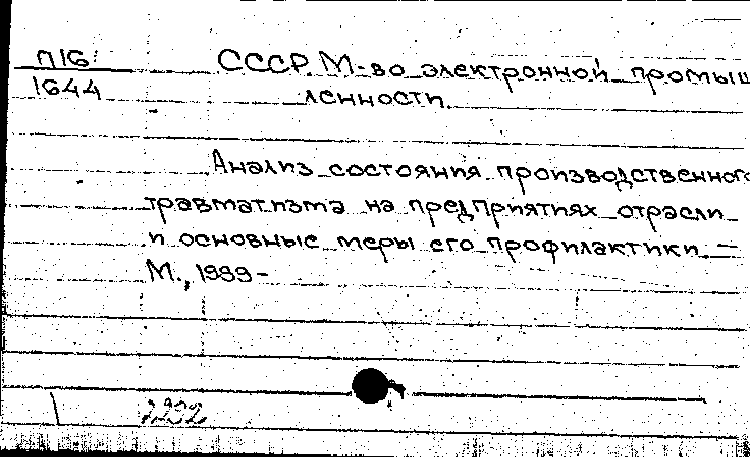 П16
1644
СССР. М-во электронной промыш
ленности.
Анализ состояния производственного
травматизма на предприятиях отрасли
и основные меры его профилактики. —
М., 1989 -
2292